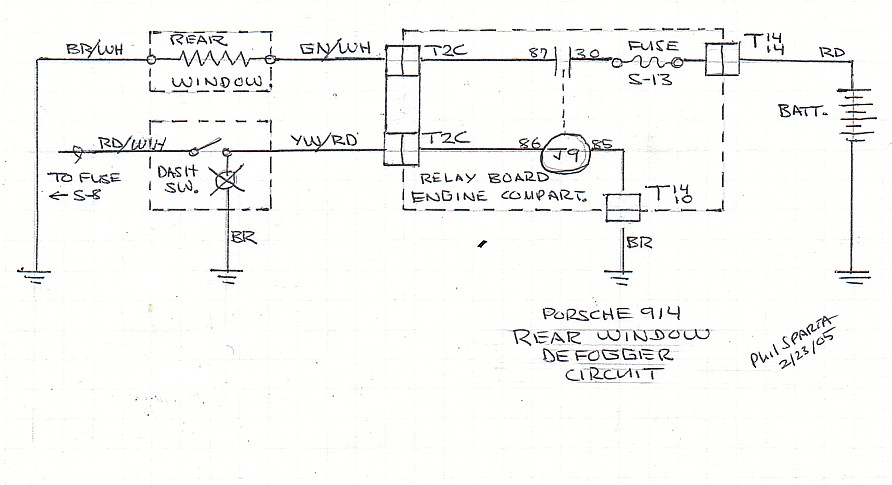 BR/WH
REAR
WINDOW
GN/WH
T2C
87
30
FUSE
S-13
T14
14
RD
BATT.
RD/WH
TO FUSE
← S-8
DASH
SW.
YW/RD
T2C
86
J9
85
RELAY BOARD
ENGINE COMPART.
T14
10
BR
BR
PORSCHE 914
REAR WINDOW
DEFOGGER
CIRCUIT
Phil SPARTA
2/23/05